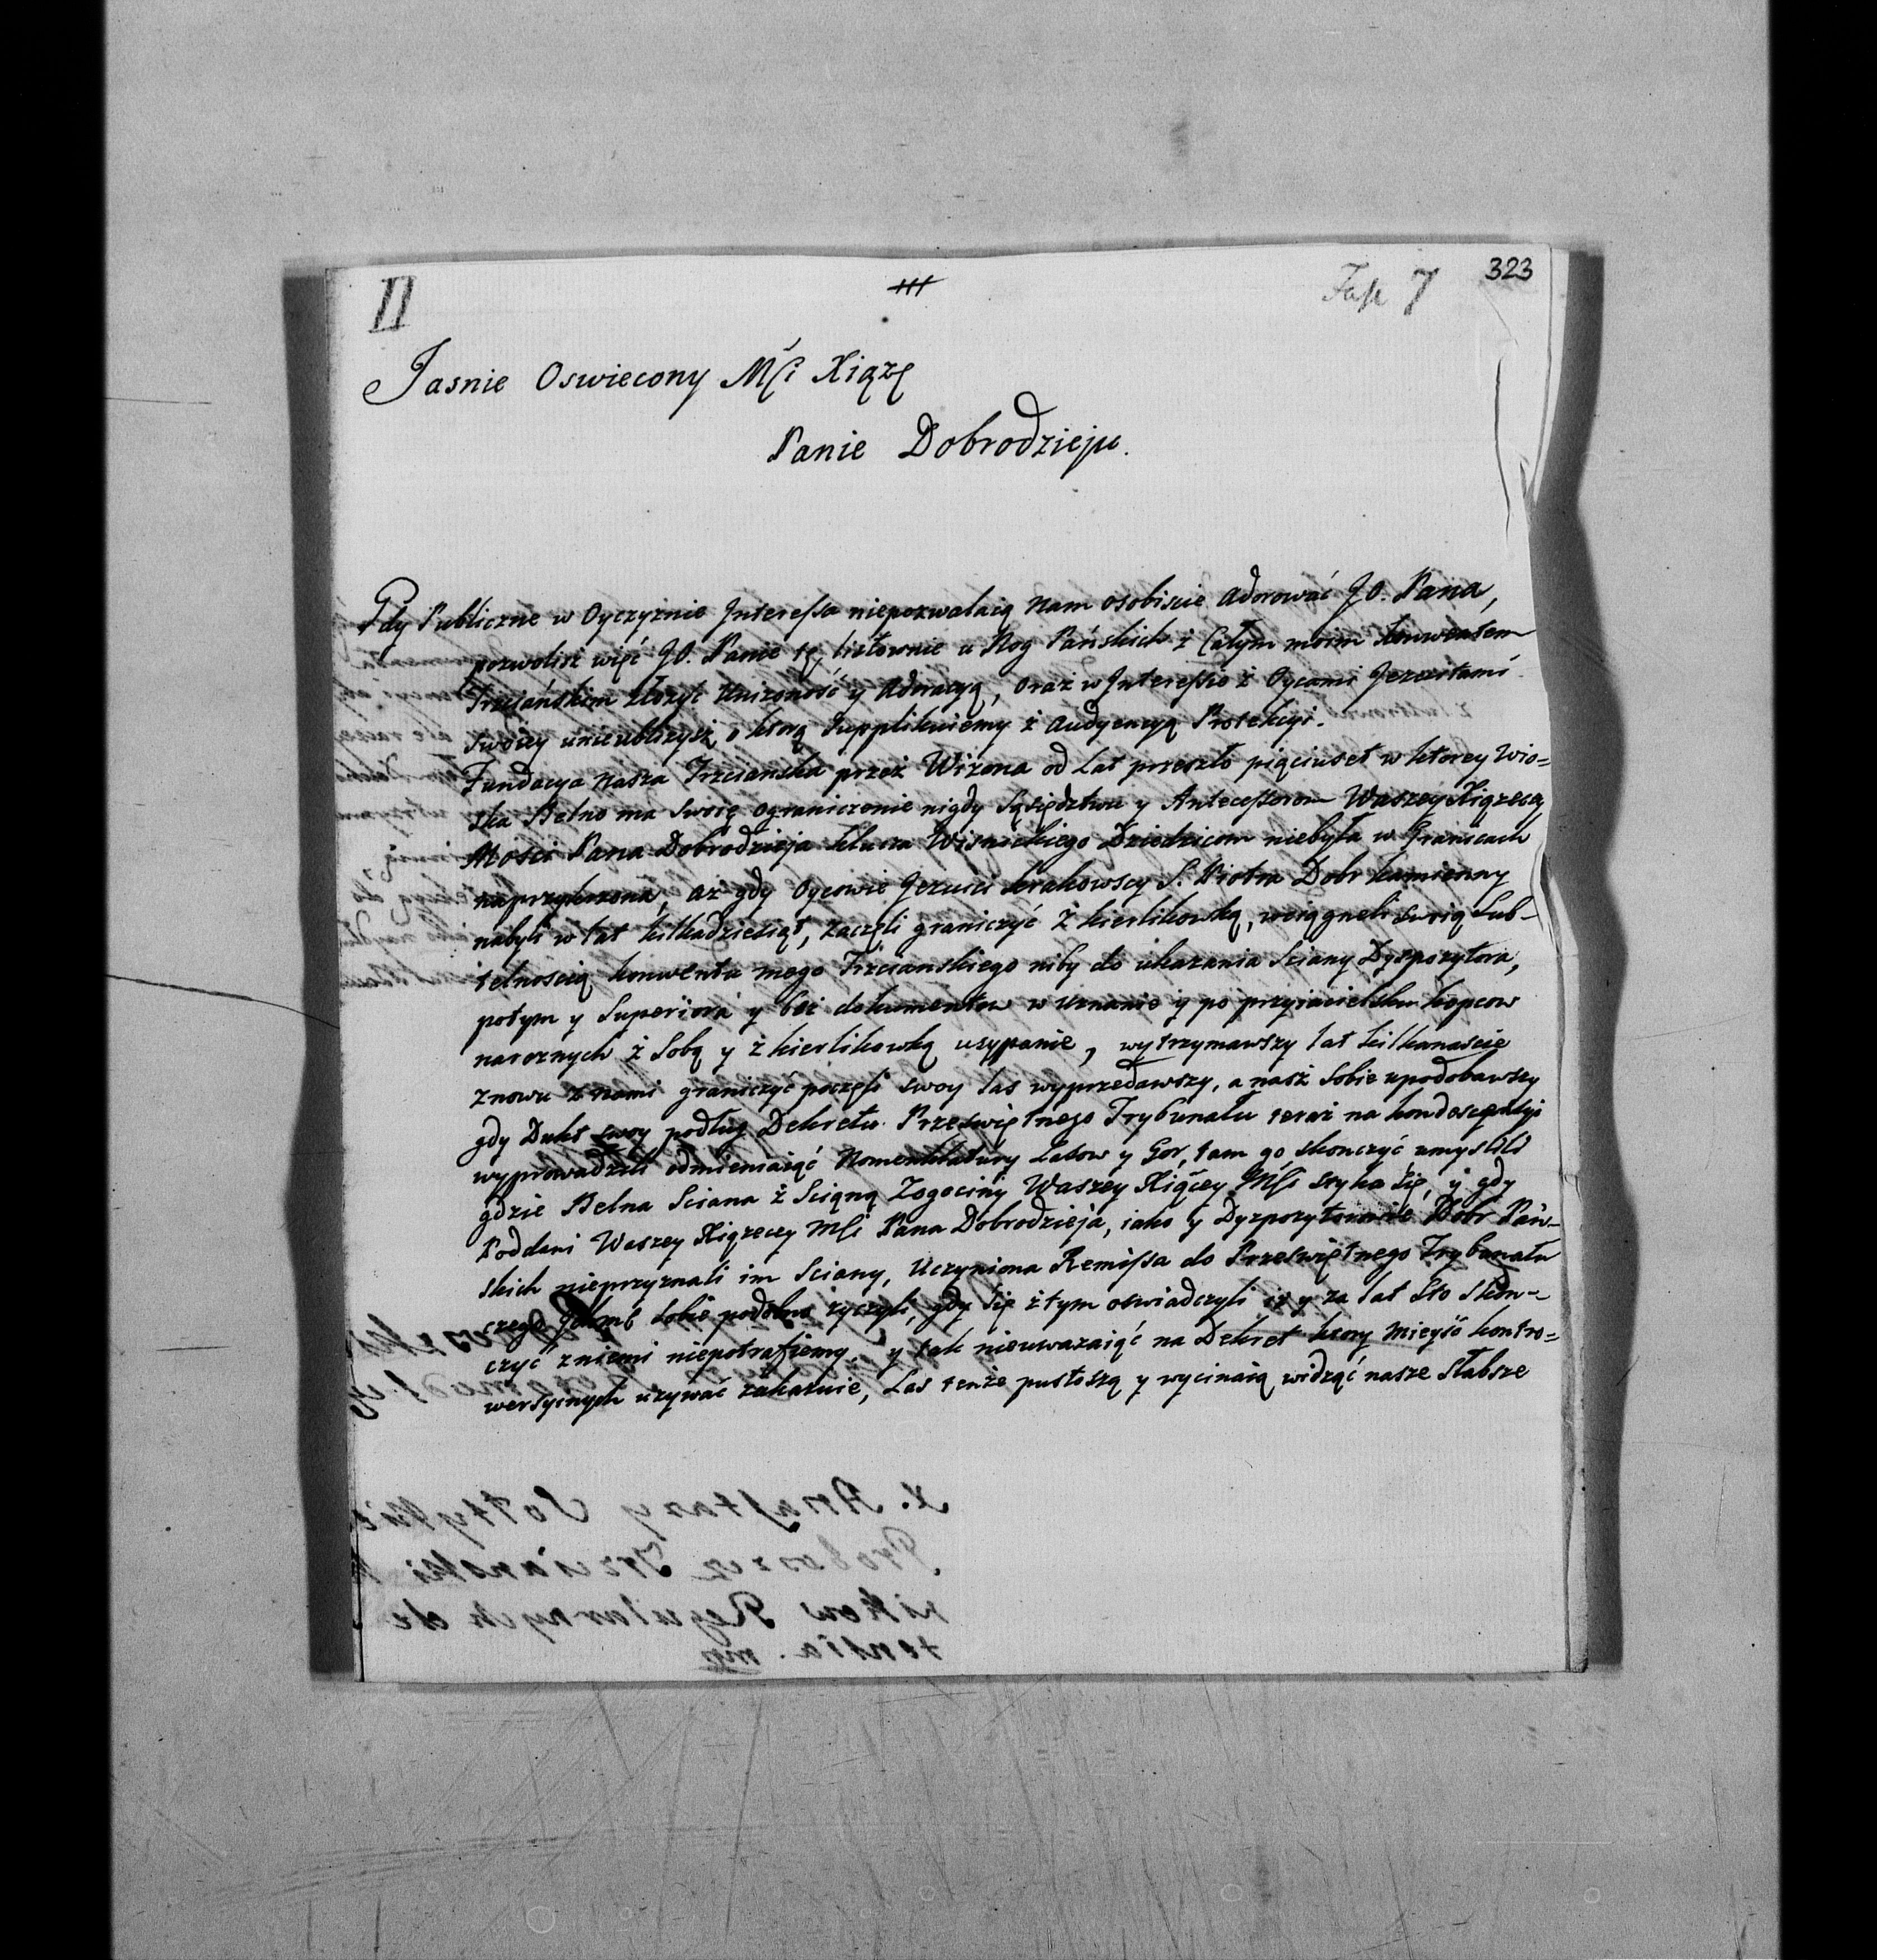 II
III
Fasc 7
323
Jasnie Oswiecony Mśi Xiąże
Panie Dobrodzieju.
Gdy Publiczne w Oyczyznie Interessa niepozwalaią nam osobiscie adorować JO. Pana,
pozwolisż więc JO. Panie tę listownie u Nog Pańskich ż Całym moim konwentem
Trzciańskim złożyć Unizoność y Adoracyą, oraż w Interessie ż Oycami Jezuitami
swoiey nieublizysż, o ktorą supplikuiemy ż Audyencyą Protekcyi.
Fundacya nasza Trzcianska przeż Wizena od Lat przeszło pięciuset w ktorey Wio=
ska Belno ma swoię ograniczenie nigdy Sąsiędztwu y Antecessorom Waszey Xiązecey
Mosci Pana Dobrodzieja klucza Wisnickiego Dziedzicom niebyła w Granicach
naprzykrzona, aż gdy Oycowie Jezuici krakowscy S. Piotra Dobr kamienny
nabyli w lat kilkadziesiąt, zaczęli graniczyć ż kierlikowką, wciągneli swoią sub-
telnoscią konwentu mego Trzcianskiego niby do ukazania Sciany Dyspozytora,
potym y Superiora y beż dokumentow w uznanie y po przyiacielsku kopcow
naroznych ż Sobą y ż kierlikowką usypanie, wytrzymawszy lat kilkanascie
znowu z nami graniczyć poczęli swoy las wyprzedawszy, a nasż sobie upodobawszy
gdy Dukt swoy podług Dekretu Przeswiętnego Trybunału teraż na kondescensyi
wyprowadzili odmieniaiąć Nomenklatury Lasow y Gor, tam go skonczyć umyslili
gdzie Belna Sciana ż Scianą Zogociny Waszey Xiącey Mśi styka się, y gdy
Poddani Waszey Xiązecey Mśi Pana Dobrodzieja, iako y Dyzpozytorowie Dobr Pań-
skich nieprzyznali im Sciany, Uczyniona Remissa do Przeswiętnego Trybunału
czego sobie podobno zyczyli, gdy się ż tym oswiadczyli iż y za lat sto skon-
czyć zniemi niepotrafiemy. y tak nieuwazaiąć na Dekret ktory mieysć kontro=
wersyinych uzywać zakazuie, Las tenże pustoszą y wycinaią widząć nasze słabsze
X. Anastazy Sołtyki
Proboszcz Trzcianski
nikow Regularnych de
tentia. mp